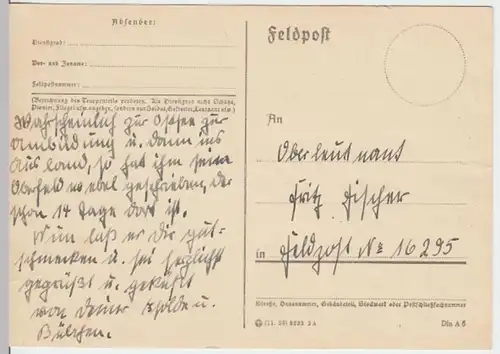 Absender:
Dienstgrad:
Vor- und Zuname:
Feldpostnummer:
(Bezeichnung des Truppenteils verboten. Als Dienstgrad nicht Schütze,
Pionier, Flieger usw. angeben, sondern nur Soldat, Gefreiter, Leutnant usw.)
Wahrscheinlich zur Ostsee zur
Ausbildung u. dann ins
Ausland, so hat ihm sein
Oberfeldwebel geschrieben, der
schon 14 Tage dort ist.
Nun laß es Dir gut-
schmecken u. sei herzlichst
gegrüßt u. geküßt
von Deiner u.
Feldpost
An
Oberleutnant
Fritz Fischer
in Feldpost No 16295
Straße, Hausnummer, Gebäudeteil, Stockwerk oder Postschließfachnummer
Din A 6